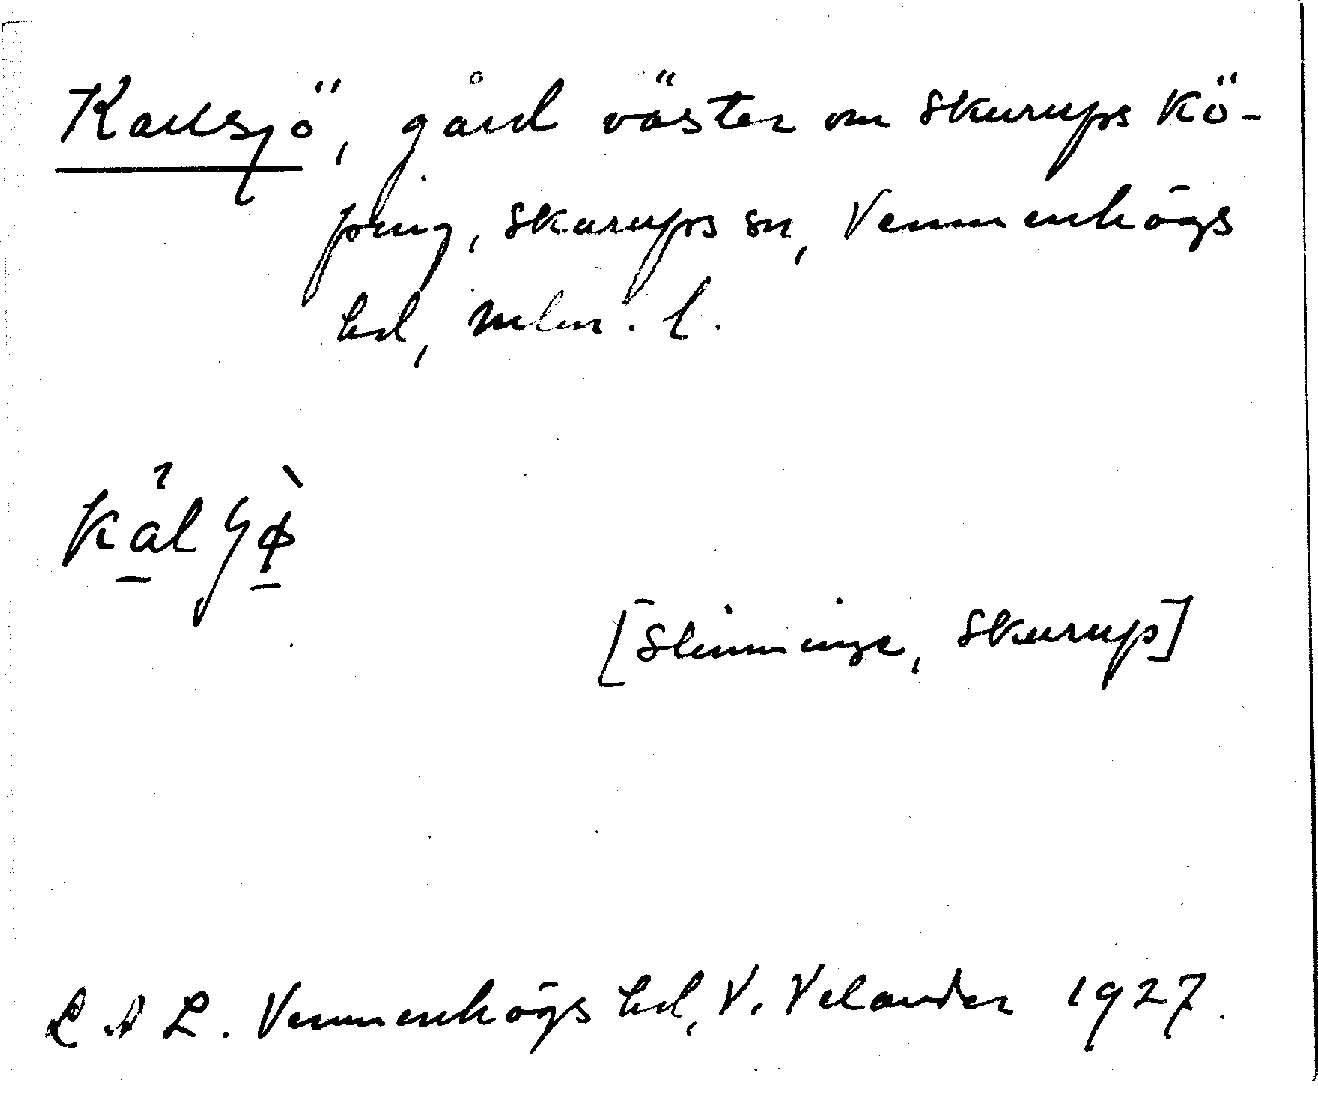 Karlsjö, gård väster om Skurups kö-
ping, Skurups sn, Vemmenhögs
hd, Mlm. l.
[Slimminge, Skurup]
L A L. Vemmenhögs hd, V. Velander 1927.